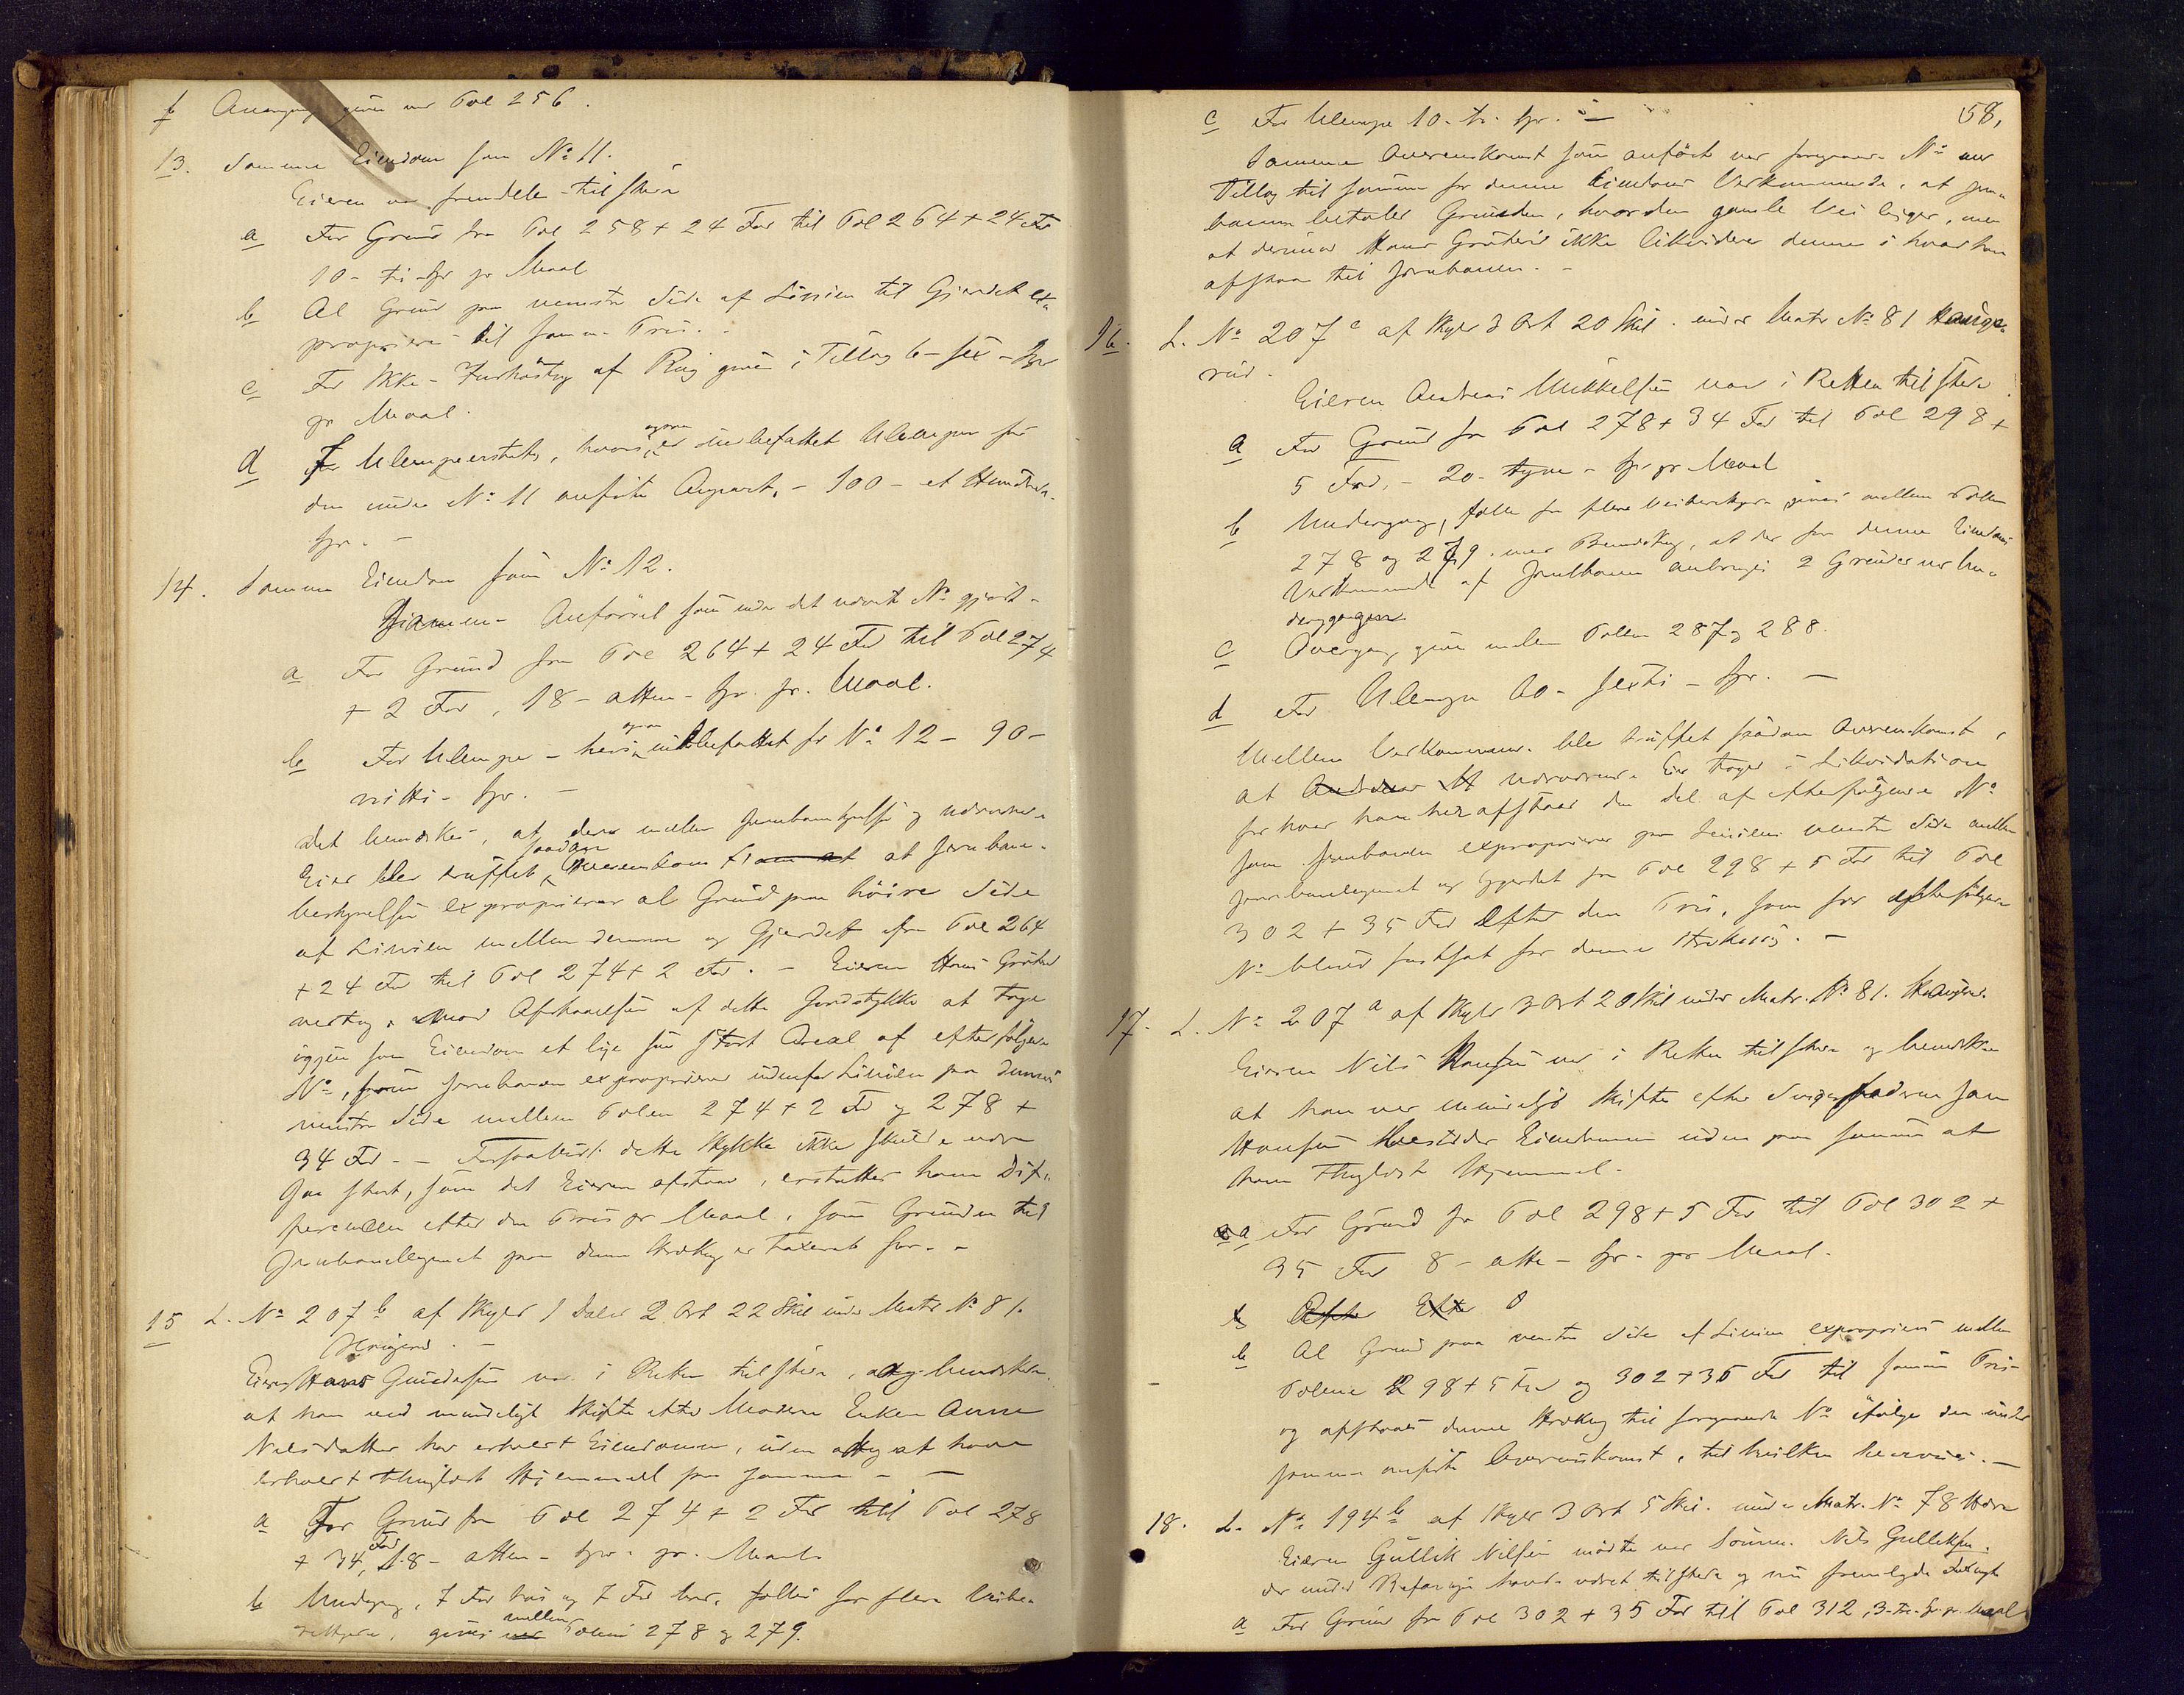 f Overgang gives ved Pæl 256.
13. Samme Eiendom som No 11.
Eieren var fremdeles tilstede
a For Grund fra Pæl 258 + 24 Fod til Pæl 264 + 24 Fod
10 - ti - Spd pr Maal
b Al Grund paa venstre Side af Linien til Gjerdet ex-
proprieres til samme Pris.
c For Ikke-Indhøstning af Rug gives i Tillæg 6 - sex - Spd
pr Maal.
d For Ulempeerstatning, hvori ogsaa er indbefattet Ulemper for
den under No 11 anførte Avgsart, - 100 - et Hundrede -
Spd. -
14. Samme Eiendom som No 12.
Samme Anførsel som under det nævnte No gjort.
a For Grund fra Pæl 264 + 24 Fod til Pæl 274
+ 2 Fod, 18 - atten - Spd. pr. Maal.
b For Ulempe - heri ogsaa indbefattet for No 12 - 90 -
nitti - Spd. -
Det bemærkes, at der mellem Jernbanestyrelsen og nærværende
Eier blev truffet saadan Overenskomst om at at Jernbane-
bestyrelsen exproprierer al Grund paa høire Side
af Linien mellem denne og Gjerdet fra Pæl 264
+ 24 Fod til Pæl 274 + 2 Fod. - Eieren Hans
mod Afstaaelsen af dette Jordstykke at tage
igjen som Eiendom et lige saa stort Areal af efterfølgende
No, som Jernbanen exproprierer udenfor Linien paa dennes
venstre Side mellem Pælen 274 + 2 Fod og 278 +
34 Fod. - Forsaavidt dette Stykke ikke skulde være
saa stort, som det Eieren afstaar, erstattes ham Dif-
ferencen efter den Pris pr Maal, som Grunden til
Jernbanelegemet paa denne Strækning er taxeret for. -
15 L. No 207 b af Skyld 1 Daler 2 Ort 22 Skil under Matr No 81
Haugerud. -
Eieren Hans Gundersen var i Retten tilstede, og bemærkede
at han ved mindeligt Skifte efter Moderen Enken Anne
Nilsdatter har erhvervet Eiendommen, uden at have
erhvervet thinglæst Hjemmel paa samme - -
a For Grund fra Pæl 274 + 2 Fod til Pæl 278
+ 34 Fod, 18 - atten - Spd. pr. Maal.
b Undergang, 7 Fod bred og 7 Fod høi, fælles for flere Veibe-
rettigede, gives ved mellem Pælene 278 og 279.
58.
c For Ulempe 10 - ti - Spd. -
Samme Overenskomst som anført ved foregaaende No med
Tillæg til samme for denne Eiendoms Vedkommende, at Jern-
banen betaler Grunden, hvor den gamle Vei ligger, men
at derimod Hans ikke likviderer denne i hvad han
afstaar til Jernbanen. -
16. L. No 207 c af Skyld 3 Ort 20 Skil. under Matr No 81 Hauge-
rud.
Eieren Andreas Mikkelsen var i Retten tilstede
a For Grund fra Pæl 278 + 34 Fod til Pæl 298 +
5 Fod, - 20 - tyve - Spd pr Maal
b Undergang, fælles for flere Veiberettigede gives mellem Pælene
278 og 279 med Bemærkning, at der for denne Eiendoms
Vedkommende af Jernbanen anbringes 2 Grinder ved Un-
dergangen
c Overgang gives mellem Pælene 287 og 288.
d For Ulempe 60 - sexti - Spd. -
Mellem Vedkommende blev truffet saadan Overenskomst,
at Andreas M nærværende Eier tager i Likvidation
for hvad han her afstaar den Del af efterfølgende No
som Jernbanen exproprierer paa Liniens venstre Side mellem
Jernbanelegemet og Gjerdet fra Pæl 298 + 5 Fod til Pæl
302 + 35 Fod efter den Pris, som for efterfølgende
No bliver fastsat for denne Strækning. -
17. L. No 207 a af Skyld 3 Ort 20 Skil under Matr. No 81. Haugerud.
Eieren Nils Hansen var i Retten tilstede og bemærkede
at han ved mindeligt Skifte efter Svigerfaderen Jan
Hansen besidder Eiendommen uden paa samme at
have thinglæst Hjemmel.
a For Grund fra Pæl 298 + 5 Fod til Pæl 302 +
35 Fod 8 - otte - Spd. pr Maal.
b Al Grund paa venstre Side af Linien exproprieres mellem
Pælene 298 + 5 Fod og 302 + 35 Fod til samme Pris
og afstaaes denne Strækning til foregaaende No ifølge den under
samme anførte Overenskomst, til hvilken henvises. -
18. L. No 194 b af Skyld 3 Ort 5 Skil. under Matr. No 78
Eieren Gullik Nilsen mødte ved Sønnen Nils Gulliksen,
der under Befaringen havde været tilstede og nu fremlagde Fuldmagt
a For Grund fra Pæl 302 + 35 Fod til Pæl 312, 3 - tre - Spd pr. Maal